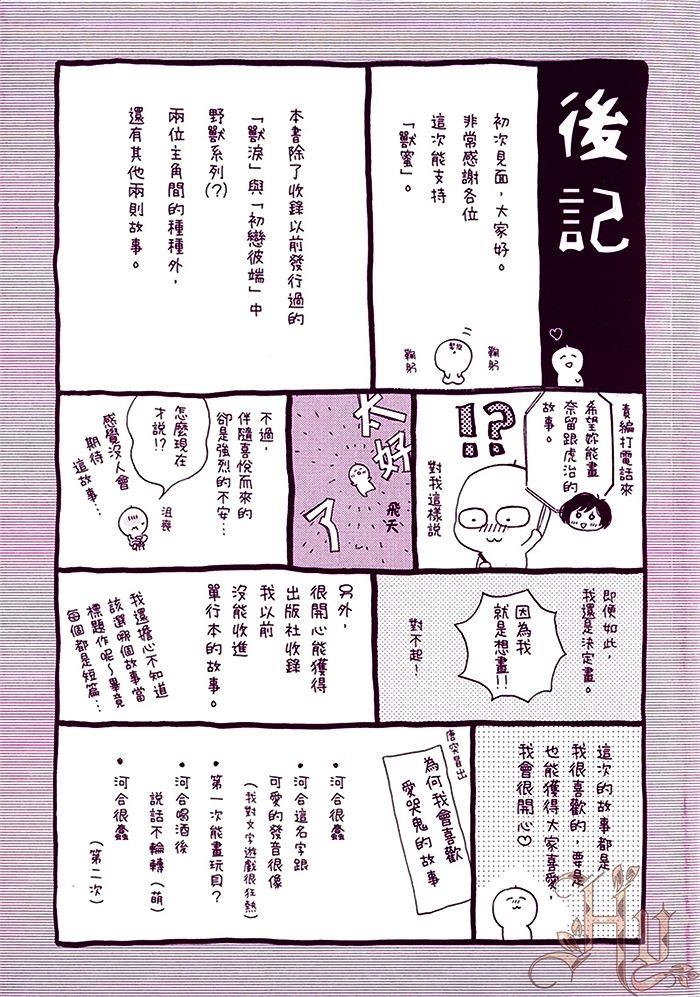 後記
初次見面，大家好。
非常感謝各位
這次能支持
「獸蜜」。
鞠躬
鞠躬
本書除了收錄以前發行過的
「獸淚」與「初戀彼端」中
野獸系列(?)
兩位主角間的種種外，
還有其他兩則故事。
責編打電話來
希望妳能畫
奈留跟虎治的
故事。
!?
對我這樣說
太好了
飛天
不過，
伴隨喜悅而來的
卻是強烈的不安…
怎麼現在
才說!?
沮喪
感覺沒人會
期待
這故事…
即便如此，
我還是決定畫。
因為我
就是想畫!!
對不起！
另外，
很開心能獲得
出版社收錄
我以前
沒能收進
單行本的故事。
我還擔心不知道
該選哪個故事當
標題作呢～畢竟
每個都是短篇…
這次的故事都是
我很喜歡的，要是
也能獲得大家喜愛，
我會很開心♡
唐突冒出
為何我會喜歡
愛哭鬼的故事
•河合很蠢
•河合這名字跟
可愛的發音很像
(我對文字遊戲很狂熱)
•第一次能畫玩具？
•河合喝酒後
說話不輪轉(萌)
•河合很蠢
(第二次)
Hy